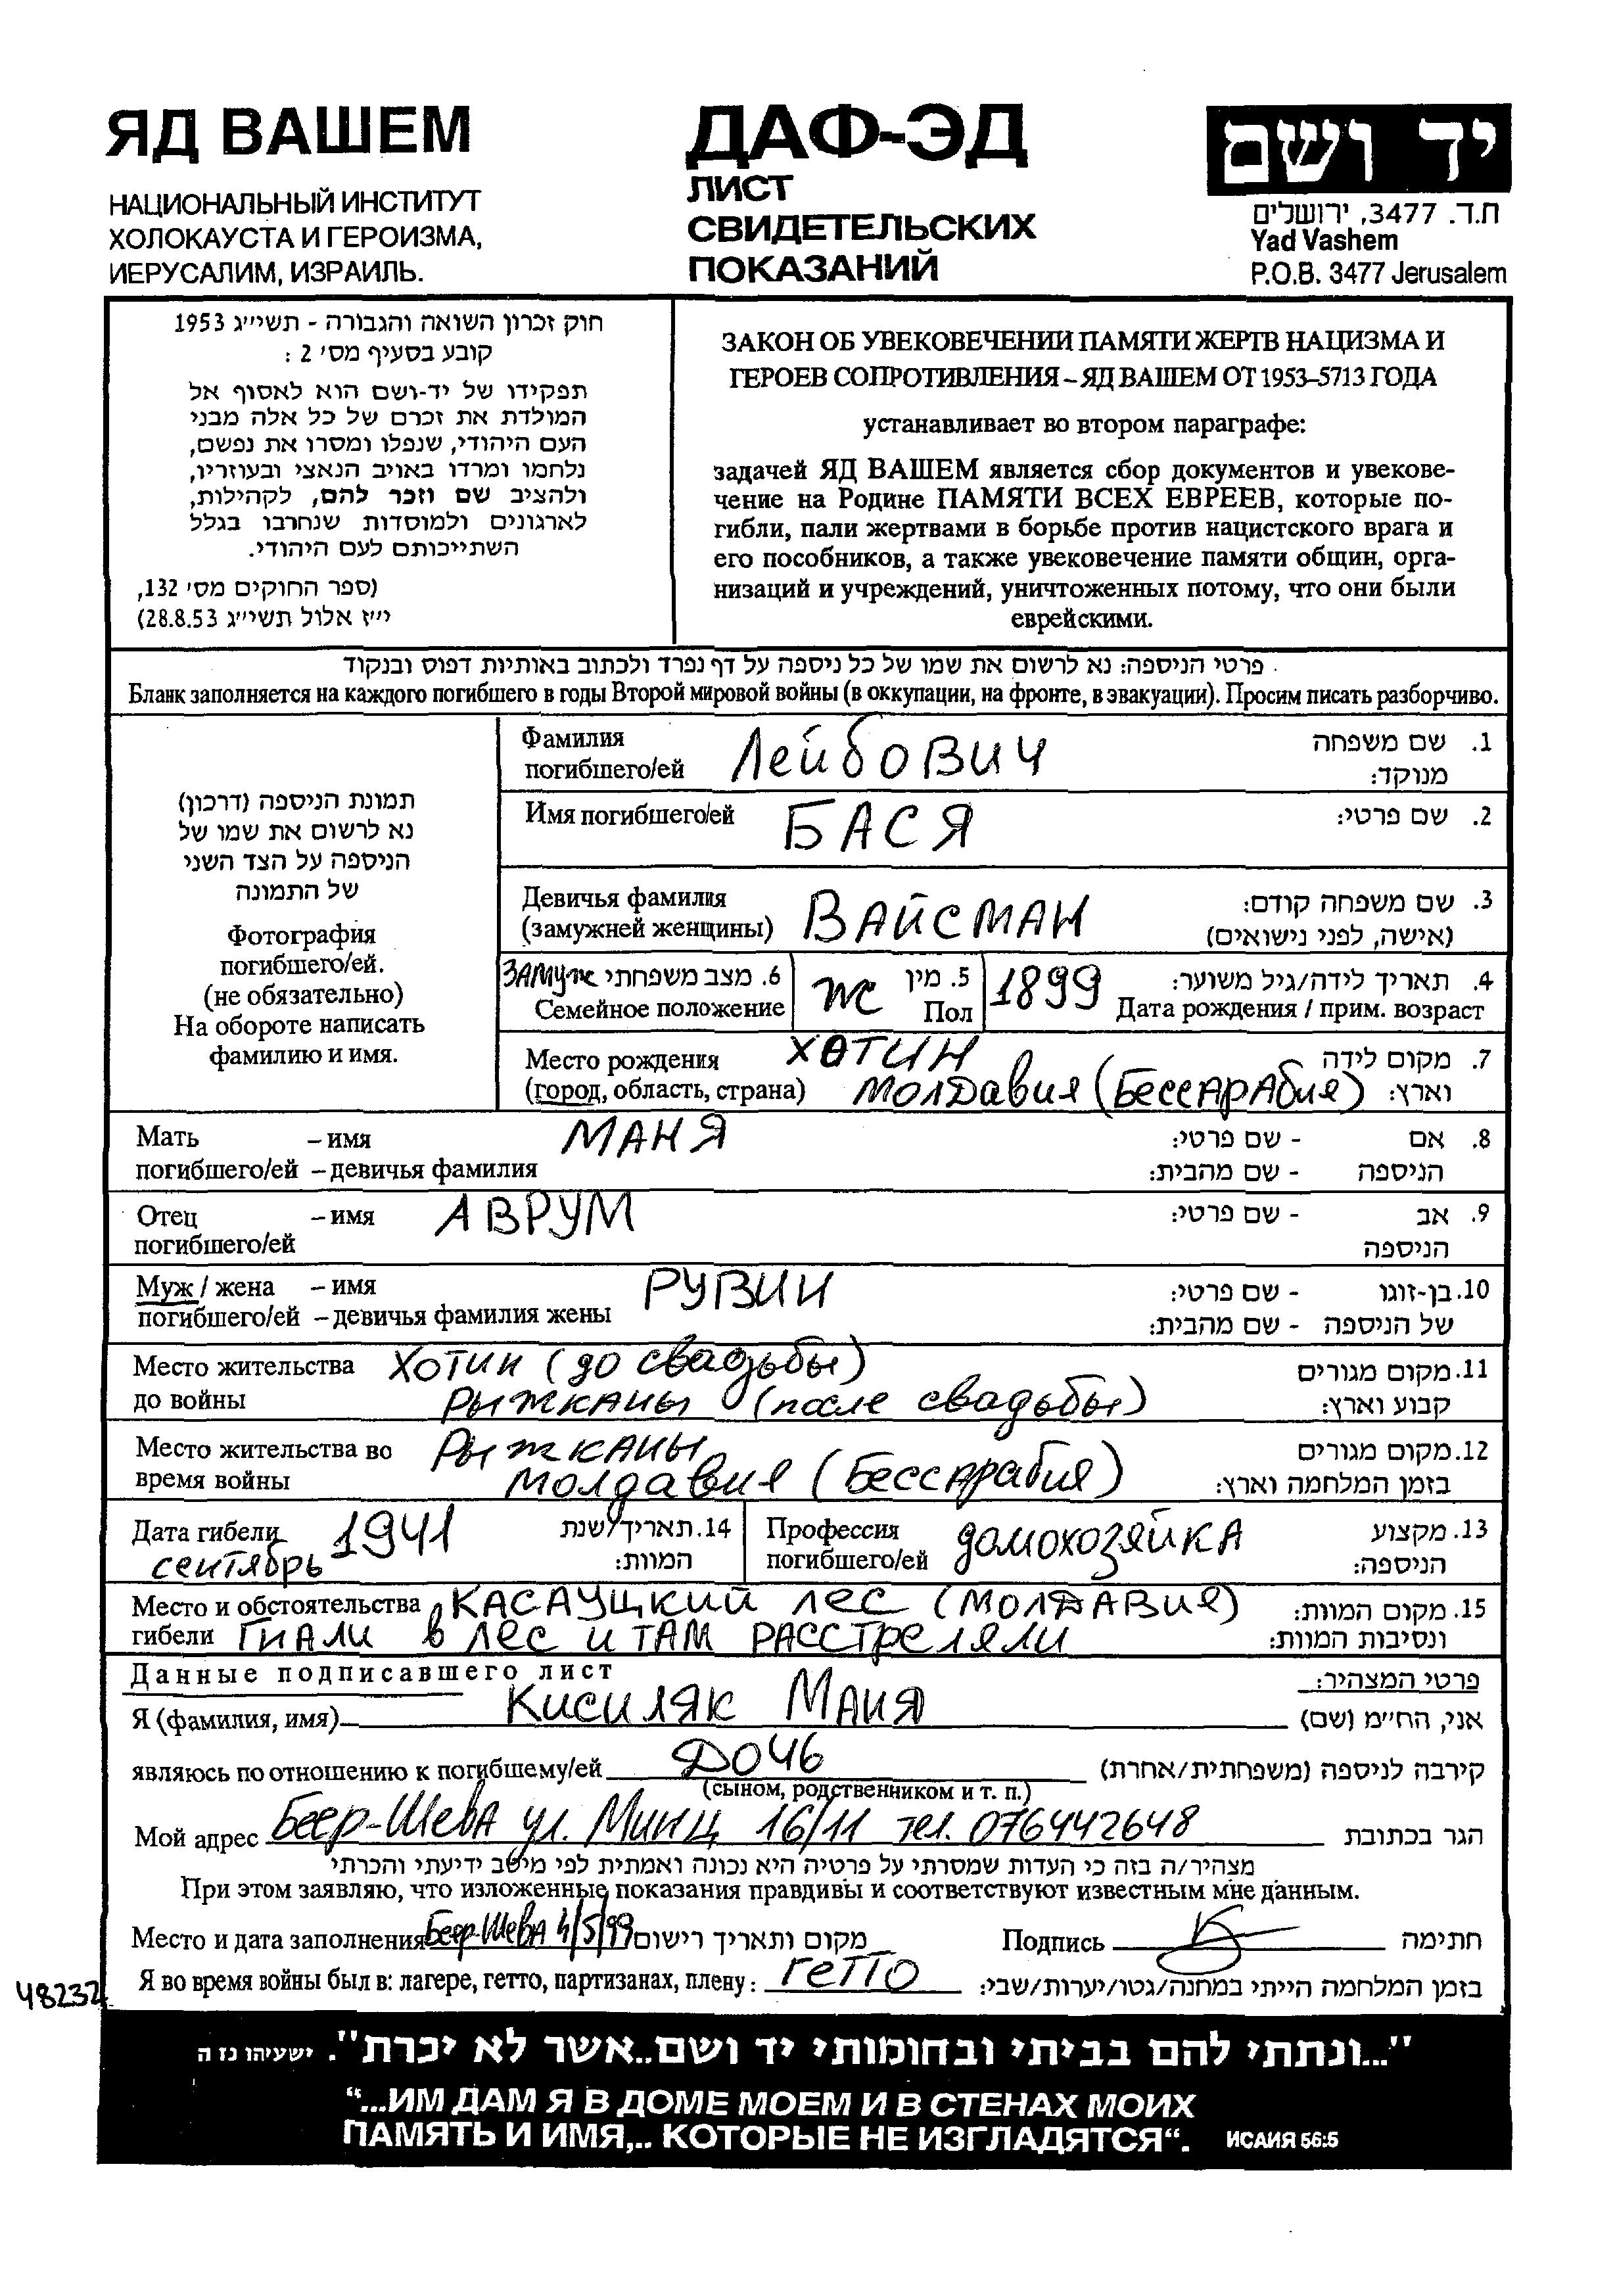 ЯД ВАШЕМ
НАЦИОНАЛЬНЫЙ ИНСТИТУТ
ХОЛОКАУСТА И ГЕРОИЗМА,
ИЕРУСАЛИМ, ИЗРАИЛЬ.
ДАФ-ЭД
ЛИСТ
СВИДЕТЕЛЬСКИХ
ПОКАЗАНИЙ
יד ושם
ת.ד. 3477, ירושלים
Yad Vashem
P.O.B. 3477 Jerusalem
חוק זכרון השואה והגבורה - תשי״ג 1953
קובע בסעיף מס׳ 2 :
תפקידו של יד-ושם הוא לאסוף אל
המולדת את זכרם של כל אלה מבני
העם היהודי, שנפלו ומסרו את נפשם,
נלחמו ומרדו באויב הנאצי ובעוזריו,
ולהציב שם וזכר להם, לקהילות,
לארגונים ולמוסדות שנחרבו בגלל
השתייכותם לעם היהודי.
(ספר החוקים מס׳ 132,
י״ז אלול תשי״ג 28.8.53)
ЗАКОН ОБ УВЕКОВЕЧЕНИИ ПАМЯТИ ЖЕРТВ НАЦИЗМА И
ГЕРОЕВ СОПРОТИВЛЕНИЯ – ЯД ВАШЕМ ОТ 1953–5713 ГОДА
устанавливает во втором параграфе:
задачей ЯД ВАШЕМ является сбор документов и увекове-
чение на Родине ПАМЯТИ ВСЕХ ЕВРЕЕВ, которые по-
гибли, пали жертвами в борьбе против нацистского врага и
его пособников, а также увековечение памяти общин, орга-
низаций и учреждений, уничтоженных потому, что они были
еврейскими.
פרטי הניספה: נא לרשום את שמו של כל ניספה על דף נפרד ולכתוב באותיות דפוס ובנקוד
Бланк заполняется на каждого погибшего в годы Второй мировой войны (в оккупации, на фронте, в эвакуации). Просим писать разборчиво.
תמונת הניספה (דרכון)
נא לרשום את שמו של
הניספה על הצד השני
של התמונה
Фотография
погибшего/ей.
(не обязательно)
На обороте написать
фамилию и имя.
Фамилия Лейбович 1. שם משפחה
погибшего/ей מנוקד:
Имя погибшего/ей БАСЯ 2. שם פרטי:
Девичья фамилия ВАЙСМАН 3. שם משפחה קודם:
(замужней женщины) (אישה, לפני נישואים)
ЗАМУЖ 6. מצב משפחתי ж 5. מין 1899 4. תאריך לידה/גיל משוער:
Семейное положение Пол Дата рождения / прим. возраст
Место рождения ХОТИН 7. מקום לידה
(город, область, страна) МОЛДАвия (БессАРАбия) וארץ:
Мать – имя МАНЯ 8. אם - שם פרטי:
погибшего/ей – девичья фамилия הניספה - שם מהבית:
Отец – имя АВРУМ 9. אב - שם פרטי:
погибшего/ей הניספה
Муж / жена – имя РУВИН 10. בן-זוגו - שם פרטי:
погибшего/ей – девичья фамилия жены של הניספה - שם מהבית:
Место жительства Хотин (до свадьбы) 11. מקום מגורים
до войны Рыжканы (после свадьбы) קבוע וארץ:
Место жительства во Рыжканы 12. מקום מגורים
время войны Молдавия (Бессарабия) בזמן המלחמה וארץ:
Дата гибели 1941 14. תאריך/שנת Профессия домохозяйка 13. מקצוע
сентябрь המוות: погибшего/ей הניספה:
Место и обстоятельства КАСАУЦКИЙ ЛЕС (МОЛДАВИЯ) 15. מקום המוות:
гибели ГНАЛИ в ЛЕС и ТАМ РАССТРЕЛЯЛИ ונסיבות המוות:
Данные подписавшего лист פרטי המצהיר:
Я (фамилия, имя) Кисиляк Маня אני, החי״מ (שם)
являюсь по отношению к погибшему/ей Дочь קירבה לניספה (משפחתית/אחרת)
(сыном, родственником и т. п.)
Мой адрес Беер-Шева ул. Минц 16/11 тел. 076442648 הגר בכתובת
מצהיר/ה בזה כי העדות שמסרתי על פרטיה היא נכונה ואמתית לפי מיטב ידיעתי והכרתי
При этом заявляю, что изложенные показания правдивы и соответствуют известным мне данным.
Место и дата заполнения Беер-Шева 4/5/99 מקום ותאריך רישום Подпись חתימה
Я во время войны был в: лагере, гетто, партизанах, плену: гетто בזמן המלחמה הייתי במחנה/גטו/יערות/שבי:
48232
"...ונתתי להם בביתי ובחומותי יד ושם..אשר לא יכרת". ישעיהו נז ה
“...ИМ ДАМ Я В ДОМЕ МОЕМ И В СТЕНАХ МОИХ
ПАМЯТЬ И ИМЯ,.. КОТОРЫЕ НЕ ИЗГЛАДЯТСЯ“. ИСАИЯ 56:5